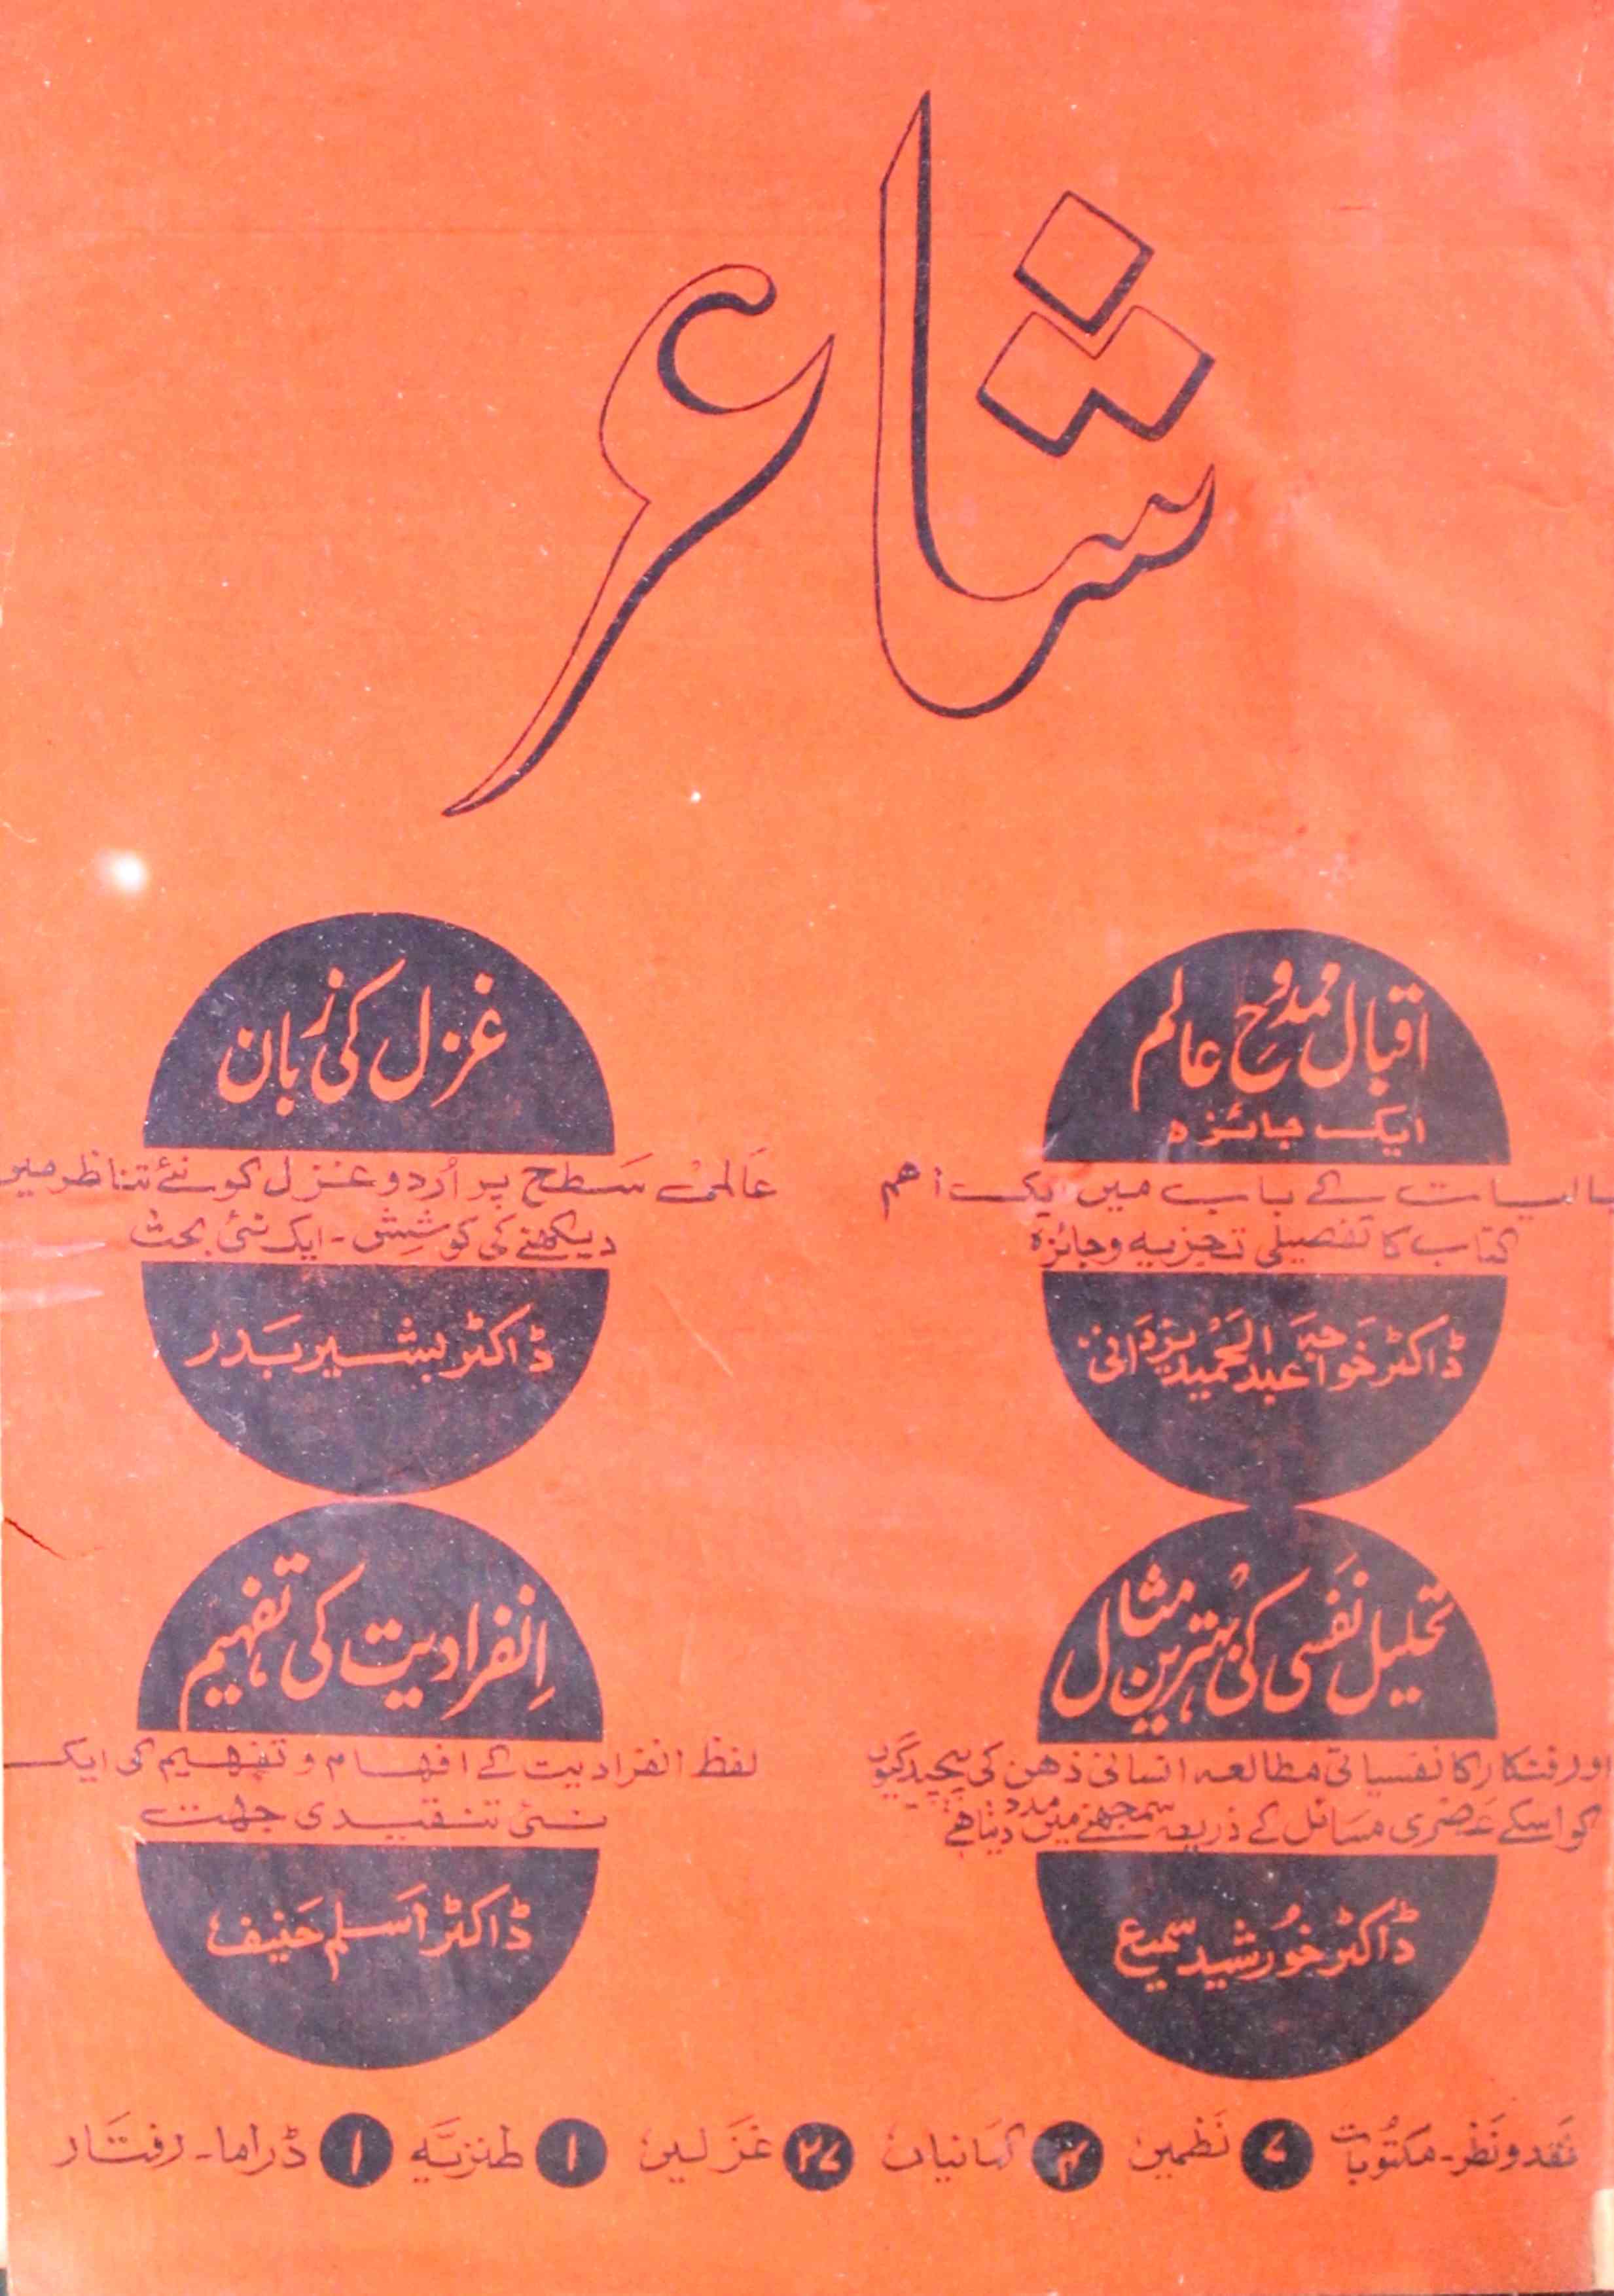 شاعر
اقبال ممدوحِ عالم
ایک جائزہ
بالیات کے باب میں ایک اہم
کتاب کا تفصیلی تجزیہ و جائزہ
ڈاکٹر خواجہ عبدالحمید یزدانی
غزل کی زبان
عالمی سطح پر اُردو غزل کو نئے تناظر میں
دیکھنے کی کوشش - ایک نئی بحث
ڈاکٹر بشیر بدر
تحلیل نفسی کی بہترین مثال
اور فنکار کا نفسیاتی مطالعہ انسانی ذہن کی پیچیدگیوں
کو اسکے عصری مسائل کے ذریعہ سمجھنے میں مدد دیتا ہے
ڈاکٹر خورشید سمیع
اِنفرادیت کی تفہیم
لفظ انفرادیت کے افہام و تفہیم کی ایک
نئی تنقیدی جہت
ڈاکٹر اسلم حنیف
نقد و نظر - مکتوبات ۷ نظمیں ۴ کہانیاں ۲۷ غزلیں ۱ طنزیہ ۱ ڈراما - رفتار